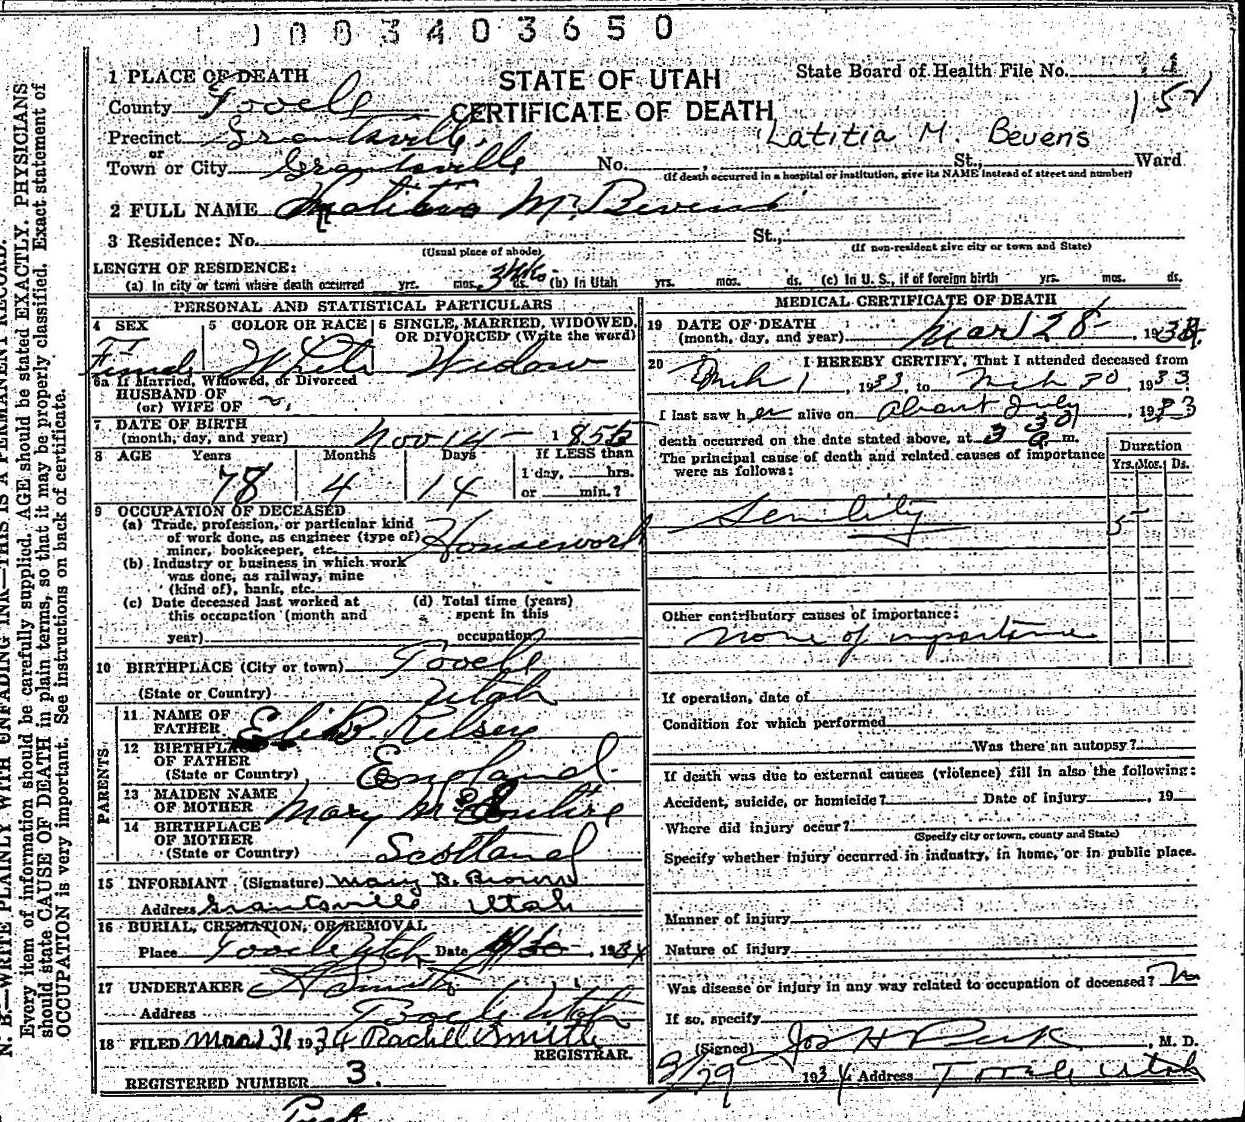 1003403650
1 PLACE OF DEATH
STATE OF UTAH
CERTIFICATE OF DEATH
State Board of Health File No.
152
County Tooele
Precinct Grantsville
Latitia M. Bevens
or
Town or City Grantsville No. , St., Ward
(If death occurred in a hospital or institution, give its NAME instead of street and number)
2 FULL NAME M. Bevens
3 Residence: No. St.,
(Usual place of abode) (If non-resident give city or town and State)
LENGTH OF RESIDENCE:
(a) In city or town where death occurred yrs. mos. 3 wks. ds. (b) In Utah yrs. mos. ds. (c) In U. S., if of foreign birth yrs. mos. ds.
PERSONAL AND STATISTICAL PARTICULARS
4 SEX 5 COLOR OR RACE 6 SINGLE, MARRIED, WIDOWED, OR DIVORCED (Write the word)
Female White Widow
6a If Married, Widowed, or Divorced
HUSBAND OF
(or) WIFE OF
7 DATE OF BIRTH
(month, day, and year) Nov 14 - 1855
8 AGE Years Months Days If LESS than
1 day, hrs.
or min.?
78 4 14
9 OCCUPATION OF DECEASED
(a) Trade, profession, or particular kind
of work done, as engineer (type of)
miner, bookkeeper, etc. Housework
(b) Industry or business in which work
was done, as railway, mine
(kind of), bank, etc.
(c) Date deceased last worked at
this occupation (month and
year)
(d) Total time (years)
spent in this
occupation
10 BIRTHPLACE (City or town) Tooele
(State or Country) Utah
PARENTS
11 NAME OF
FATHER Eli B. Kelsey
12 BIRTHPLACE
OF FATHER
(State or Country) England
13 MAIDEN NAME
OF MOTHER Mary
14 BIRTHPLACE
OF MOTHER
(State or Country) Scotland
15 INFORMANT (Signature) Mary B. Brown
Address Grantsville Utah
16 BURIAL, CREMATION, OR REMOVAL
Place Tooele Utah Date , 1934
17 UNDERTAKER
Address Tooele Utah
18 FILED Mar 31 1934 Rachel Smith
REGISTRAR.
REGISTERED NUMBER 3.
MEDICAL CERTIFICATE OF DEATH
19 DATE OF DEATH
(month, day, and year) Mar 28 - , 193
20 I HEREBY CERTIFY, That I attended deceased from
Mch 1 , 1933 to Mch 30 , 1933
I last saw her alive on About July , 1933
death occurred on the date stated above, at 3 30 a. m.
The principal cause of death and related causes of importance
were as follows:
Duration
Yrs. Mos. Ds.
Senility 5
Other contributory causes of importance:
None of importance
If operation, date of
Condition for which performed
Was there an autopsy?
If death was due to external causes (violence) fill in also the following:
Accident, suicide, or homicide? Date of injury , 19
Where did injury occur?
(Specify city or town, county and State)
Specify whether injury occurred in industry, in home, or in public place.
Manner of injury
Nature of injury
Was disease or injury in any way related to occupation of deceased? No
If so, specify
(Signed) Jos H Peck , M. D.
3/29 1934 Address Tooele Utah
N. B.—WRITE PLAINLY WITH UNFADING INK—THIS IS A PERMANENT RECORD.
Every item of information should be carefully supplied. AGE should be stated EXACTLY. PHYSICIANS
should state CAUSE OF DEATH in plain terms, so that it may be properly classified. Exact statement of
OCCUPATION is very important. See instructions on back of certificate.